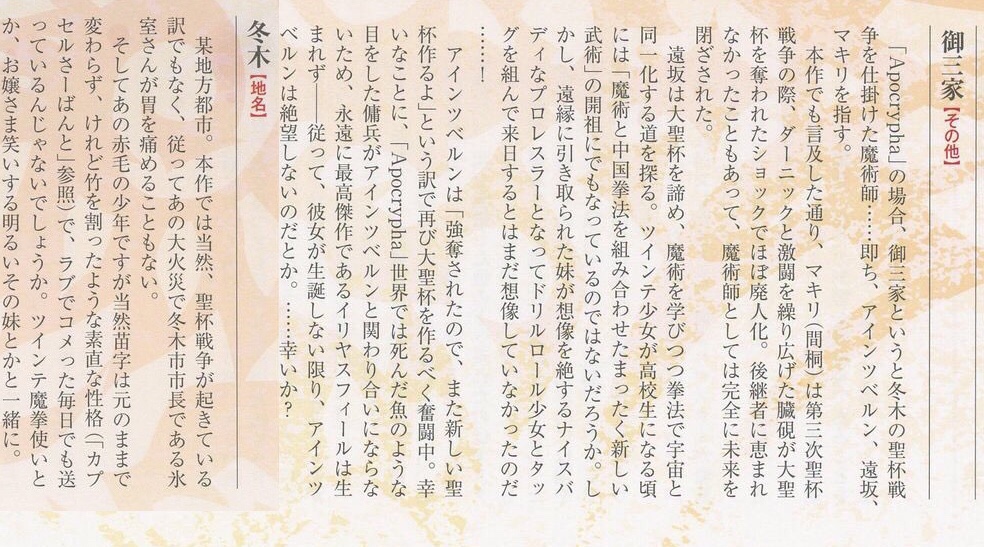 御三家【その他】
「Apocrypha」の場合、御三家というと冬木の聖杯戦
争を仕掛けた魔術師……即ち、アインツベルン、遠坂、
マキリを指す。
本作でも言及した通り、マキリ(間桐)は第三次聖杯
戦争の際、ダーニックと激闘を繰り広げた臓硯が大聖
杯を奪われたショックでほぼ廃人化。後継者に恵まれ
なかったこともあって、魔術師としては完全に未来を
閉ざされた。
遠坂は大聖杯を諦め、魔術を学びつつ拳法で宇宙と
同一化する道を探る。ツインテ少女が高校生になる頃
には「魔術と中国拳法を組み合わせたまったく新しい
武術」の開祖にでもなっているのではないだろうか。し
かし、遠縁に引き取られた妹が想像を絶するナイスバ
ディなプロレスラーとなってドリルロール少女とタッ
グを組んで来日するとはまだ想像していなかったのだ
……!
アインツベルンは「強奪されたので、また新しい聖
杯作るよ」という訳で再び大聖杯を作るべく奮闘中。幸
いなことに、「Apocrypha」世界では死んだ魚のような
目をした傭兵がアインツベルンと関わり合いにならな
いため、永遠に最高傑作であるイリヤスフィールは生
まれず――従って、彼女が生誕しない限り、アインツ
ベルンは絶望しないのだとか。……幸いか?
冬木【地名】
某地方都市。本作では当然、聖杯戦争が起きている
訳でもなく、従ってあの大火災で冬木市市長である氷
室さんが胃を痛めることもない。
そしてあの赤毛の少年ですが当然苗字は元のままで
変わらず、けれど竹を割ったような素直な性格(「カプ
セルさーばんと」参照)で、ラブでコメった毎日でも送
っているんじゃないでしょうか。ツインテ魔拳使いと
か、お嬢さま笑いする明るいその妹とかと一緒に。